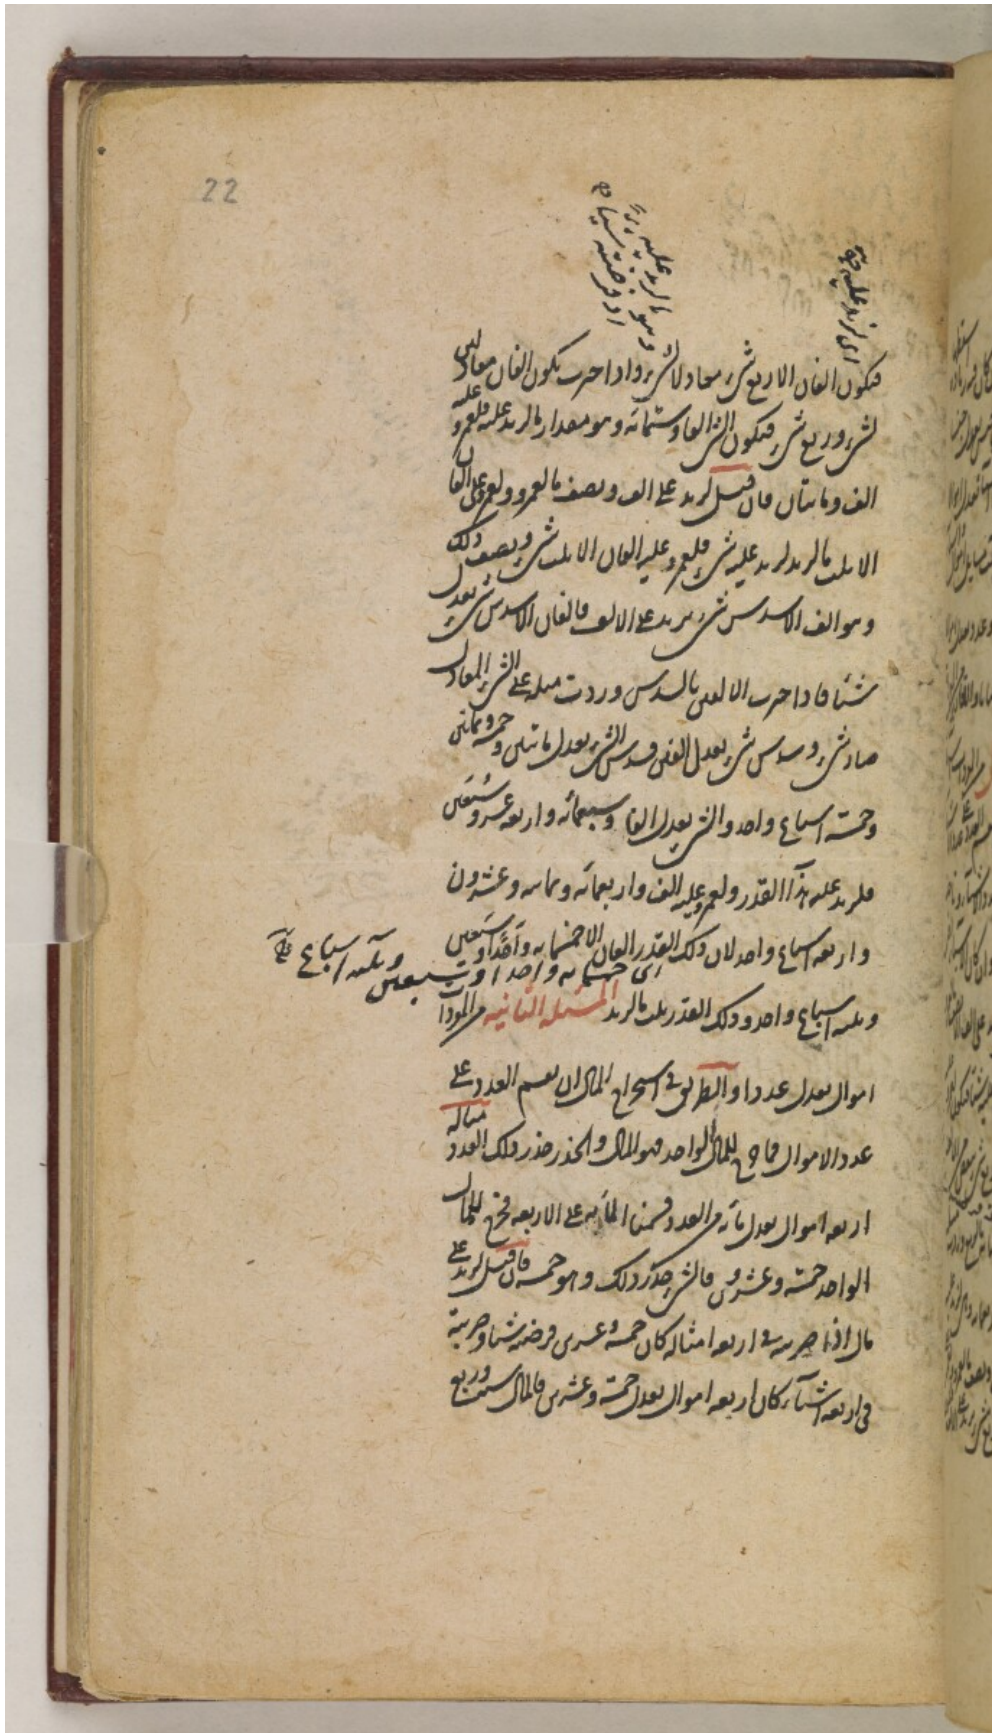 22
اى لزيد عليه
ما لزيد عليه
وهو
او فرضته شيئا
فيكون الفان الا ربع شىء معادلا لشىء واذا جبرت يكون الفان معادلين
لشىء وربع شىء فيكون الشىء الفا وستمائه وهو مقدار ما لزيد عليه فلعمرو عليه
الف ومائتان فان قيل لزيد على الف ونصف ما لعمرو ولعمرو على الفان
الا ثلث ما لزيد لزيد عليه شىء فلعمرو عليه الفان الا ثلث شىء ونصف ذلك
وهو الف الا سدس شىء يزيد على الالف فالفان الا سدس شىء يعدل
شيئا فاذا جبرت الالفين بالسدس وزدت مثله على الشىء المعادل
صار شىء وسدس شىء يعدل الفين فسدس الشىء يعدل مائتين وخمسة وثمانين
وخمسة اسباع واحد والشىء يعدل الفا وسبعمائه واربعه عشر وسبعين
فلزيد عليه هذا القدر ولعمرو عليه الف واربعمائه وثمانيه وعشرون
واربعه اسباع واحد لان ذلك القدر الفان الا خمسمائه واحدا وسبعين
اى خمسمائه واحدا وسبعين وثلثه اسباع
وثلثه اسباع واحد وذلك القدر ثلث ما لزيد المسئله الثانيه من المفردات
اموال يعدل عددا والطريق فى استخراج المال ان يقسم العدد على
عدد الاموال فما خرج للمال الواحد فهو المال والجذر جذر ذلك العدد مثاله
اربعه اموال يعدل مائه من العدد قسمنا المائه على الاربعه فخرج للمال
الواحد خمسة وعشرون فالشىء جذر ذلك وهو خمسه فان قيل لزيد على
مال اذا ضربته فى اربعه امثاله كان خمسه وعشرين فرضته شيئا وضربته
فى اربعه اشياء كان اربعه اموال يعدل خمسة وعشرين فالمال ستة وربع